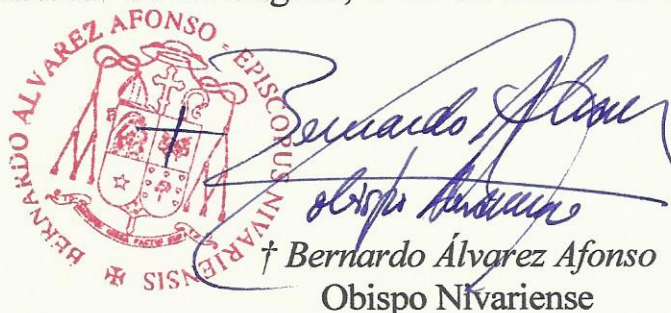 BERNARDO ALVAREZ AFONSO - EPISCOPUS NIVARIENSIS
Bernardo Álvarez
obispo Nivariense
† Bernardo Álvarez Afonso
Obispo Nivariense